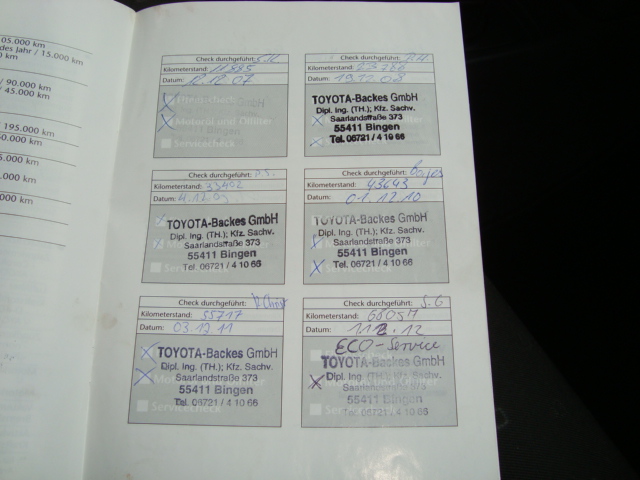 05.000 km
des Jahr / 15.000
0 km
/ 90.000 km
/ 45.000
195.000 km
0.000 km
5.000 km
.000 km
000 km
Check durchgeführt:
Kilometerstand:
Datum: 12.12.07
Motoröl und Ölfilter
Servicecheck
Check durchgeführt:
Kilometerstand:
Datum: 19.12.08
TOYOTA-Backes GmbH
Dipl. Ing. (TH.); Kfz. Sachv.
Saarlandstraße 373
55411 Bingen
Tel. 06721 / 4 10 66
Check durchgeführt: P.S.
Kilometerstand: 33402
Datum: 4.12.09
TOYOTA-Backes GmbH
Dipl. Ing. (TH.); Kfz. Sachv.
Saarlandstraße 373
55411 Bingen
Tel. 06721 / 4 10 66
Check durchgeführt:
Kilometerstand: 43643
Datum: 01.12.10
TOYOTA-Backes GmbH
Dipl. Ing. (TH.); Kfz. Sachv.
Saarlandstraße 373
55411 Bingen
Tel. 06721 / 4 10 66
Check durchgeführt:
Kilometerstand: 55717
Datum: 03.12.11
TOYOTA-Backes GmbH
Dipl. Ing. (TH.); Kfz. Sachv.
Saarlandstraße 373
55411 Bingen
Tel. 06721 / 4 10 66
Servicecheck
Check durchgeführt: S.G
Kilometerstand:
Datum:
ECO-Service
TOYOTA-Backes GmbH
Dipl. Ing. (TH.); Kfz. Sachv.
Saarlandstraße 373
55411 Bingen
Tel. 06721 / 4 10 66